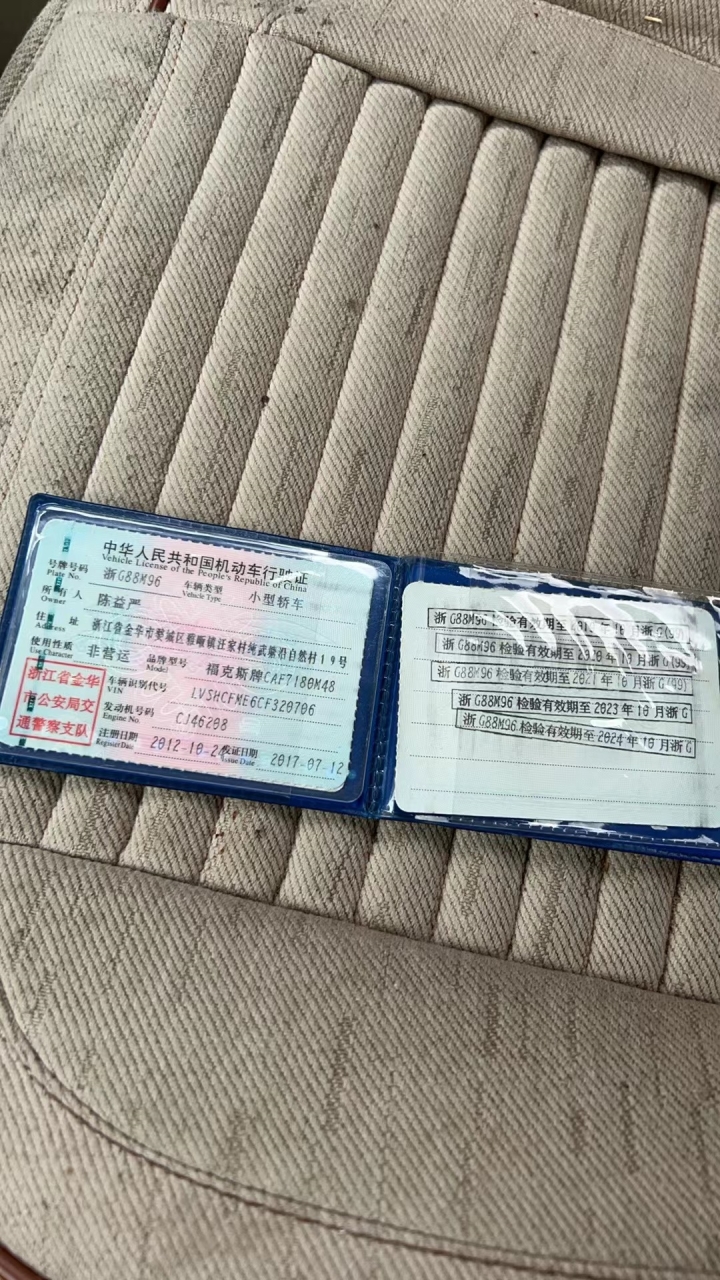 中华人民共和国机动车行驶证
Vehicle License of the People's Republic of China
号牌号码 浙G88M96 车辆类型 小型轿车
Plate No. Vehicle Type
所有人 陈益严
Owner
住址 浙江省金华市婺城区雅畈镇汪家村纯武蒙沿自然村19号
Address
使用性质 非营运 品牌型号 福克斯牌CAF7180M48
Use Character Model
浙江省金华
市公安局交
通警察支队
车辆识别代号 LVSHCFME6CF320706
VIN
发动机号码 CJ46208
Engine No.
注册日期 2012-10-24 发证日期 2017-07-12
Register Date Issue Date
浙G88M96 检验有效期至 年10月浙G(99)
浙G88M96 检验有效期至2020年10月浙G(99)
浙G88M96 检验有效期至2021年10月浙G(99)
浙G88M96 检验有效期至2023年10月浙G
浙G88M96 检验有效期至2024年10月浙G